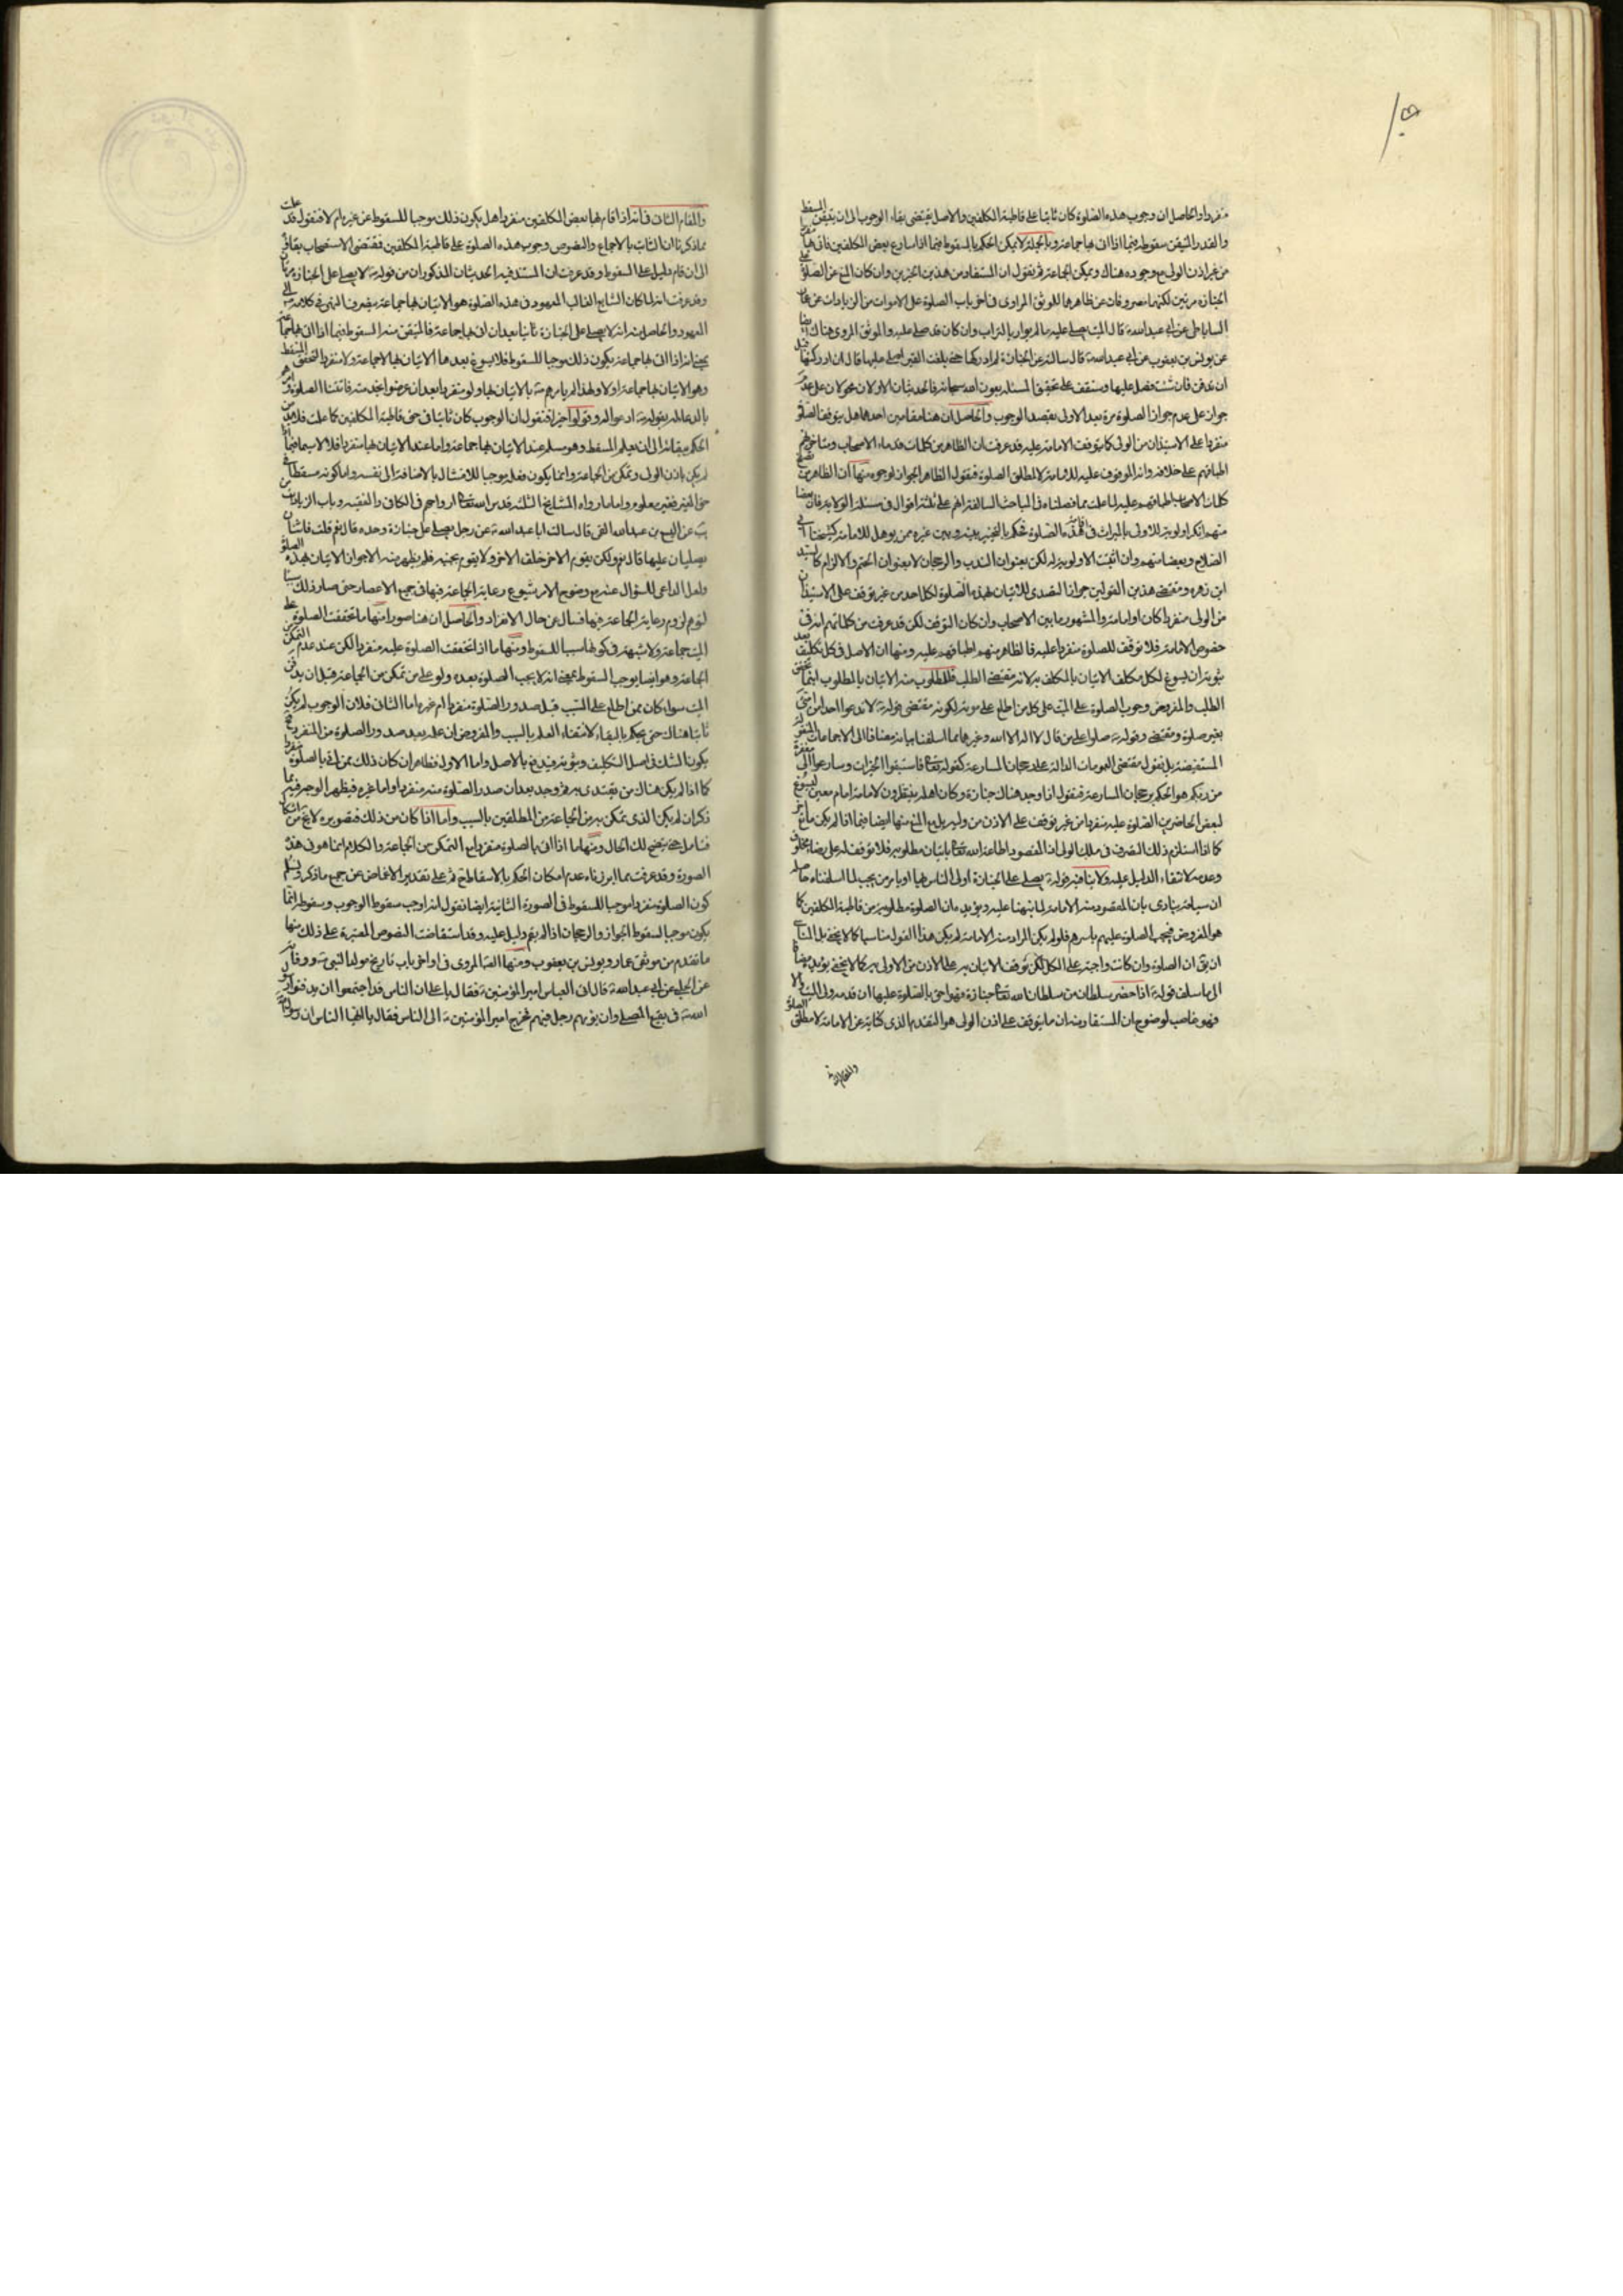 منفردا والحاصل ان وجوب هذه الصلوة كان ثابتا على قاطبة المكلفين والاصل يقتضى بقاء الوجوب الى ان يتيقن المسقط
والقدر المتيقن سقوطه فيما اذا اتى بها جماعة وبالجملة لا يمكن الحكم بالسقوط فيما اذا سارع بعض المكلفين فاتى بها
من غير اذن الولى مع وجوده هناك ويمكن الجماعة ثم نقول ان المستفاد من هذين الخبرين وان كان المنع عن الصلوة على
الجنازة مرتين لكنهما مصروفان عن ظاهرهما للموثق المروى فى اخر باب الصلوة على الاموات من الزيادات عن عمار
الساباطى عن ابى عبد الله ع قال الميت يصلى عليه ما لم يوار بالتراب وان كان قد صلى عليه والموثق المروى هناك ايضا
عن يونس بن يعقوب عن ابى عبد الله ع قال سالته عن الجنازة لم ادركها حتى بلغت القبر اصلى عليها قال ان ادركتها قبل
ان تدفن فان شئت فصل عليها وستقف على تحقيق المسئلة بعون الله سبحانه فالحديثان الاولان محمولان على عدم
جواز على عدم جواز الصلوة مرة بعد الاولى بقصد الوجوب والحاصل ان هنا مقامين احدهما هل يتوقف الصلوة
منفردا على الاستيذان من الولى كما يتوقف الامامة عليه قد عرفت ان الظاهر من كلمات قدماء الاصحاب ومتاخريهم
اطباقهم على خلافه وانه الموقوف عليه للامامة لا لمطلق الصلوة فنقول الظاهر الجواز لوجوه منها ان الظاهر من
كلمات الاصحاب اطباقهم عليه لما علمت مما فصلناه فى المباحث السالفة انهم على ثلثة اقوال فى مسئلة الولاية فان بعضا
منهم انكر اولوية الاولى بالميراث فى هذه الصلوة فحكم بالتخيير بينه وبين غيره ممن يوهل للامامة كشيخنا ابى
الصلاح وبعضا منهم وان اثبت الاولوية له لكن بعنوان الندب والرجحان لا بعنوان الحتم والالزام كالسيد
ابن زهره ومقتضى هذين القولين جواز التصدى للاتيان بهذه الصلوة لكل احد من غير توقف على الاستيذان
من الولى منفردا كان او امامة والمشهور ما بين الاصحاب وان كان التوقف لكن قد عرفت من كلماتهم انه فى
خصوص الامامة فلا توقف للصلوة منفردا عليه فالظاهر منهم اطباقهم عليه ومنها ان الاصل فى كل تكليف بعد
ثبوته ان يسوغ لكل مكلف الاتيان بالمكلف به لانه مقتضى الطلب فالمطلوب منه الاتيان بالمطلوب اينما تحقق
الطلب والمفروض وجوب الصلوة على الميت على كل من اطلع على موته لكونه مقتضى قوله ع لا تدعوا احدا من امتى
بغير صلوة ومقتضى وقوله ع صلوا على من قال لا اله الا الله وغيرهما مما اسلفنا بيانه مضافا الى الاجماعات
المستفيضة بل نقول مقتضى العمومات الدالة على رجحان المسارعة كقوله تعالى فاستبقوا الخيرات وسارعوا الى مغفرة
من ربكم هو الحكم برجحان المسارعة فنقول اذا وجد هناك جنازة وكان اهله ينتظرون لامامة امام معين ليسوغ
لبعض الحاضرين الصلوة عليه منفردا من غير توقف على الاذن من وليه بل مع المنع منها ايضا فيما اذا لم يكن مانع اخر
كما اذا استلزم ذلك التصرف فى ملك الولى اذ المقصود اطاعة الله تعالى باتيان مطلوبه فلا توقف له على رضاء مخلوق
وعدمه لانتفاء الدليل عليه ولا ينافيه قوله ع يصلى على الجنازة اولى الناس بها او يامر من يحب لما اسلفناه حاصله
ان سياقه ينادى بان المقصود منه الامامة لما نبهنا عليه ويؤيده ان الصلوة مطلوبة من قاطبة المكلفين كما
هو المفروض فيجب الصلوة عليهم باسرهم فلو لم يكن المراد منه الامامة لم يكن هذا القول مناسبا كما لا يخفى بل المناسب
ان يق ان الصلوة وان كانت واجبة على الكل لكن توقف الاتيان به على الاذن من الاولى به كما لا يخفى يؤيده مضافا
الى ما سلف قوله ع اذا حضر سلطان من سلطان الله تعالى جنازة فهو احق بالصلوة عليها ان قدمه ولى الميت والا
فهو غاصب لوضوح ان المستفاد منه ان ما يتوقف على اذن الولى هو التقديم الذى كناية عن الامامة لا مطلق الصلوة
والمقام
والمقام الثانى فى انه اذا قام بها بعض المكلفين منفردا هل يكون ذلك موجبا للسقوط عن غيره ام لا فنقول قد علمت
مما ذكرنا ان الثابت بالاجماع والنصوص وجوب هذه الصلوة على قاطبة المكلفين فمقتضى الاستصحاب بقائه
الى ان قام دليل على السقوط وقد عرفت ان المستند فيه الحديثان المذكوران من قوله ع لا يصلى على الجنازة مرتان
وقد عرفت انه لما كان الشايع الغالب المعهود فى هذه الصلوة هو الاتيان بها جماعة ينصرف المنهى فى كلامه ع الى
المعهود والحاصل منه انه لا يصلى على الجنازة ثانيا بعد ان اتى بها جماعة فالمتيقن منه السقوط فيما اذا اتى بها جماعة
بمعنى انه اذا اتى بها جماعة يكون ذلك موجبا للسقوط فلا يسوغ بعدها الاتيان بها لا جماعة ولا منفردا لتحقق المسقط
وهو الاتيان بها جماعة اولا ولهذا لم يامرهم ص بالاتيان بها ولو منفردا بعد ان عرضوا بخدمته فاتتنا الصلوة بل امرهم
بالدعا له بقوله ص ادعوا له وقولوا خيرا فنقول ان الوجوب كان ثابتا فى حق قاطبة المكلفين كما علمت فلا بد من
الحكم ببقائه الى ان يعلم المسقط وهو مسلم عند الاتيان بها جماعة واما عند الاتيان بها منفردا فلا لا سيما فيما اذا
لم يكن باذن الولى وتمكن من الجماعة وانما يكون فعله موجبا للامتثال بالاضافة الى نفسه واما كونه مسقطا فى
حق الغير فغير معلوم واما ما رواه المشايخ الثلثة قدس الله تعالى ارواحهم فى الكافى والفقيه وباب الزيادات من
يب عن اليسع بن عبد الله القمى قال سالت ابا عبد الله ع عن رجل يصلى على جنازة وحده قال نعم قلت فاثنان
يصليان عليها قال نعم ولكن يقوم الاخر خلف الاخر ولا يقوم بجنبه فلم يظهر منه الا جواز الاتيان بهذه الصلوة
ولعل الداعى للسؤال عنه مع وضوح الامر شيوع رعاية الجماعة فيها فى جميع الاعصار حتى صار ذلك سببا
لتوهم لزوم رعاية الجماعة فيها فسال عن حال الانفراد والحاصل ان هنا صورا منها ما تحققت الصلوة على
الميت جماعة ولا شبهة فى كونها سببا للسقوط ومنها ما اذا تحققت الصلوة عليه منفردا لكن عند عدم التمكن من
الجماعة وهو ايضا يوجب السقوط بمعنى انه لا يجب الصلوة بعده ولو على من تمكن من الجماعة قبل ان يدفن
الميت سواء كان ممن اطلع على السبب قبل صدور الصلوة منفردا ام غيره اما الثانى فلان الوجوب لم يكن
ثابتا هناك حتى يحكم بالبقاء لانتفاء العلم بالسبب والمفروض ان علمه بعد صدور الصلوة من المنفرد فح
يكون الشك فى اصل التكليف وثبوته فيدفع بالاصل واما الاول فظاهر ان كان ذلك ممن اتى بالصلوة منفردا
كما اذا لم يكن هناك من يقتدى به ثم وجد بعد ان صدر الصلوة منه منفردا واما غيره فيظهر الوجه فيه مما
ذكر ان لم يكن الذى تمكن به من الجماعة من المطلعين بالسبب واما اذا كان من ذلك فتصويره لا يخ من اشكال
فتامل حتى يتضح لك الحال ومنها ما اذا اتى بالصلوة منفردا مع التمكن من الجماعة والكلام انما هو فى هذه
الصورة وقد عرفت مما ابرزناه عدم امكان الحكم بالاسقاط ثم على تقدير الاغماض عن جميع ما ذكر وتسلم
كون الصلوة منفردا موجبا للسقوط فى الصورة الثانية ايضا نقول انه اوجب سقوط الوجوب وسقوطه انما
يكون موجبا لسقوط الجواز والرجحان اذا لم يقم دليل عليه وقد استفاضت النصوص المعتبرة على ذلك منها
ما تقدم من موثقى عمار ويونس بن يعقوب ومنها الصحيح المروى فى اواخر باب تاريخ مولد النبى ص ووفاته
عن الحلبى عن ابى عبد الله ع قال اتى العباس امير المؤمنين ع فقال يا على ان الناس قد اجتمعوا ان يدفنوا رسول
الله ص فى بقيع المصلى وان يؤمهم رجل منهم فخرج امير المؤمنين ع الى الناس فقال يا ايها الناس ان رسول الله